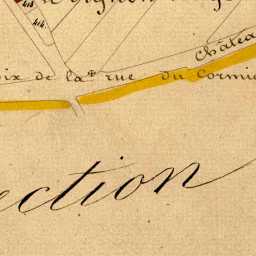 414
Châtea
oix de la rue du Cormie
ection